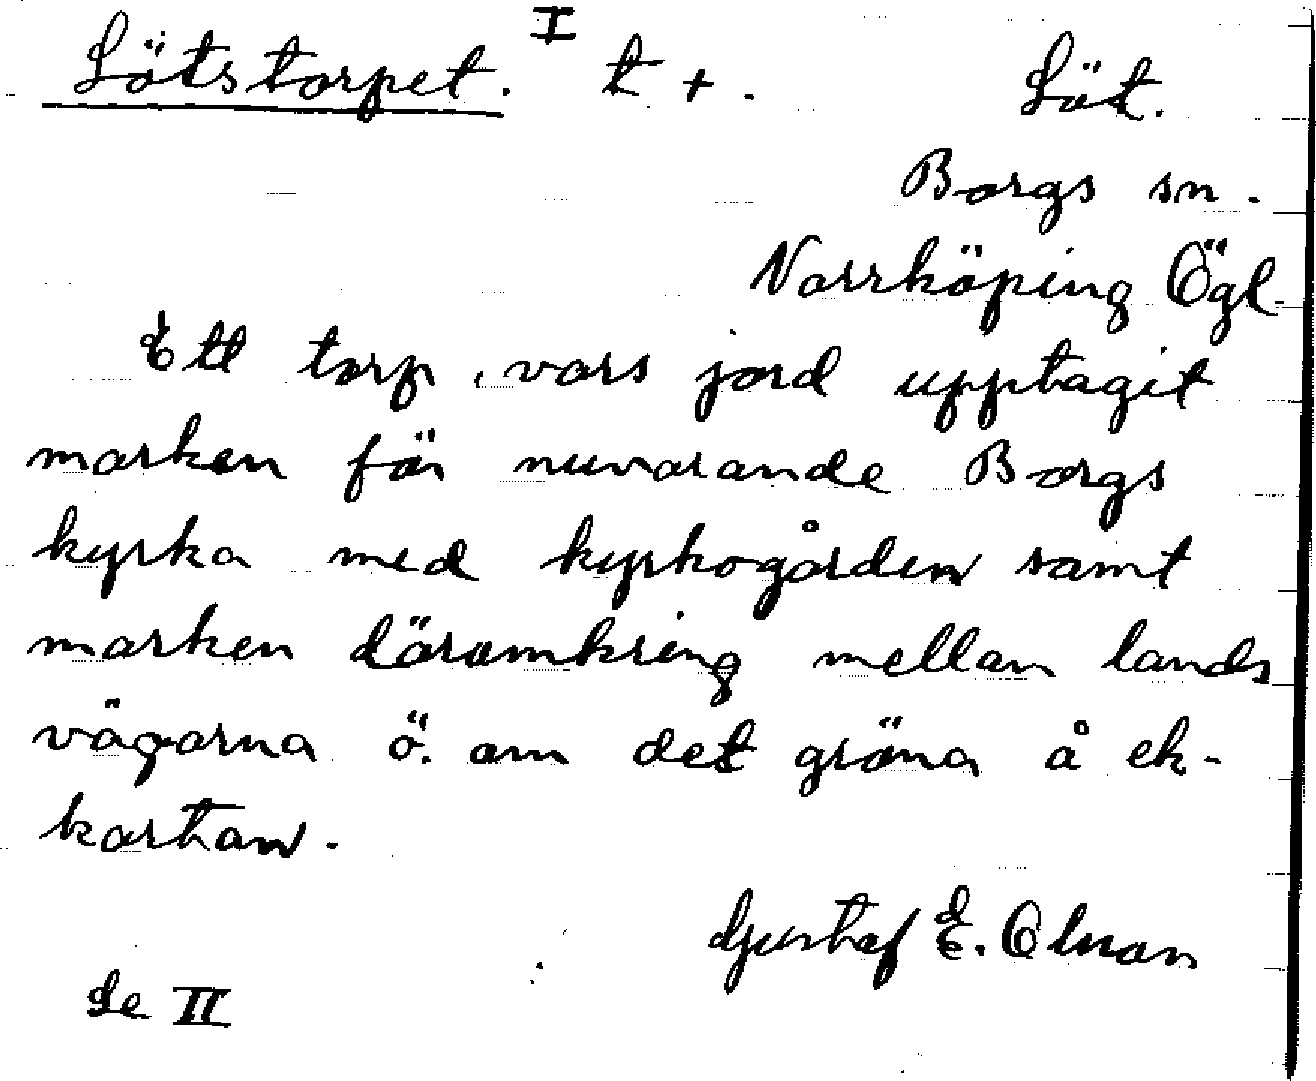 Lötstorpet. I t +. Löt.
Borgs sn.
Norrköping Ögl.
Ett torp, vars jord upptagit
marken för nuvarande Borgs
kyrka med kyrkogården samt
marken däromkring mellan lands
vägarna ö. om det gröna å ek-
kartan.
Gustaf E. Olsson
Se II